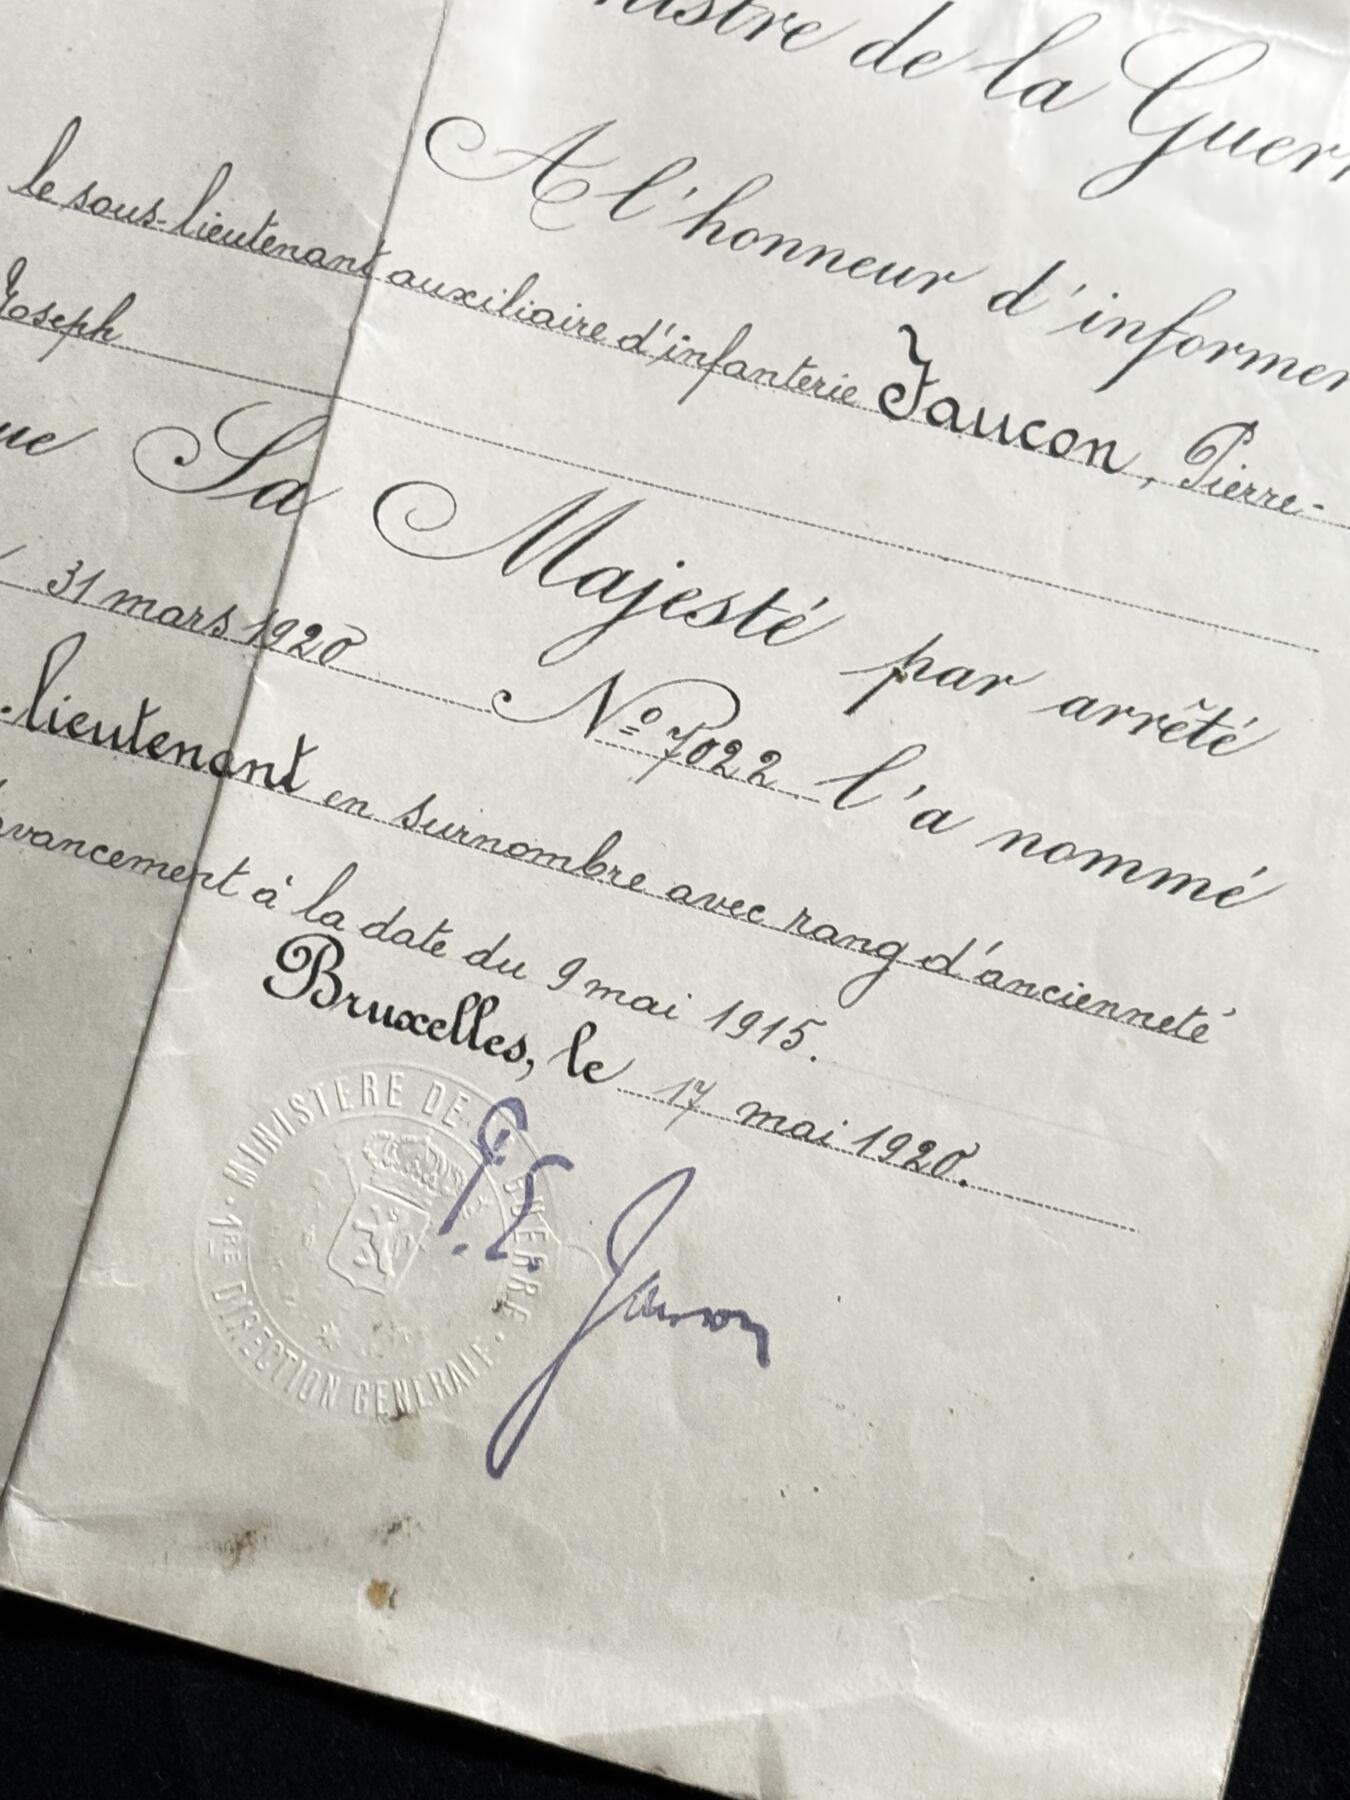 de la
A l'honneur d'informer
le sous-lieutenant auxiliaire d'infanterie Faucon, Pierre-
Joseph
Sa Majesté par arrêté
31 mars 1920 Nº 7022 l'a nommé
lieutenant en surnombre avec rang d'ancienneté
à la date du 9 mai 1915.
Bruxelles, le 17 mai 1920.
MINISTERE DE GUERRE
1RE DIRECTION GENERALE
Janson